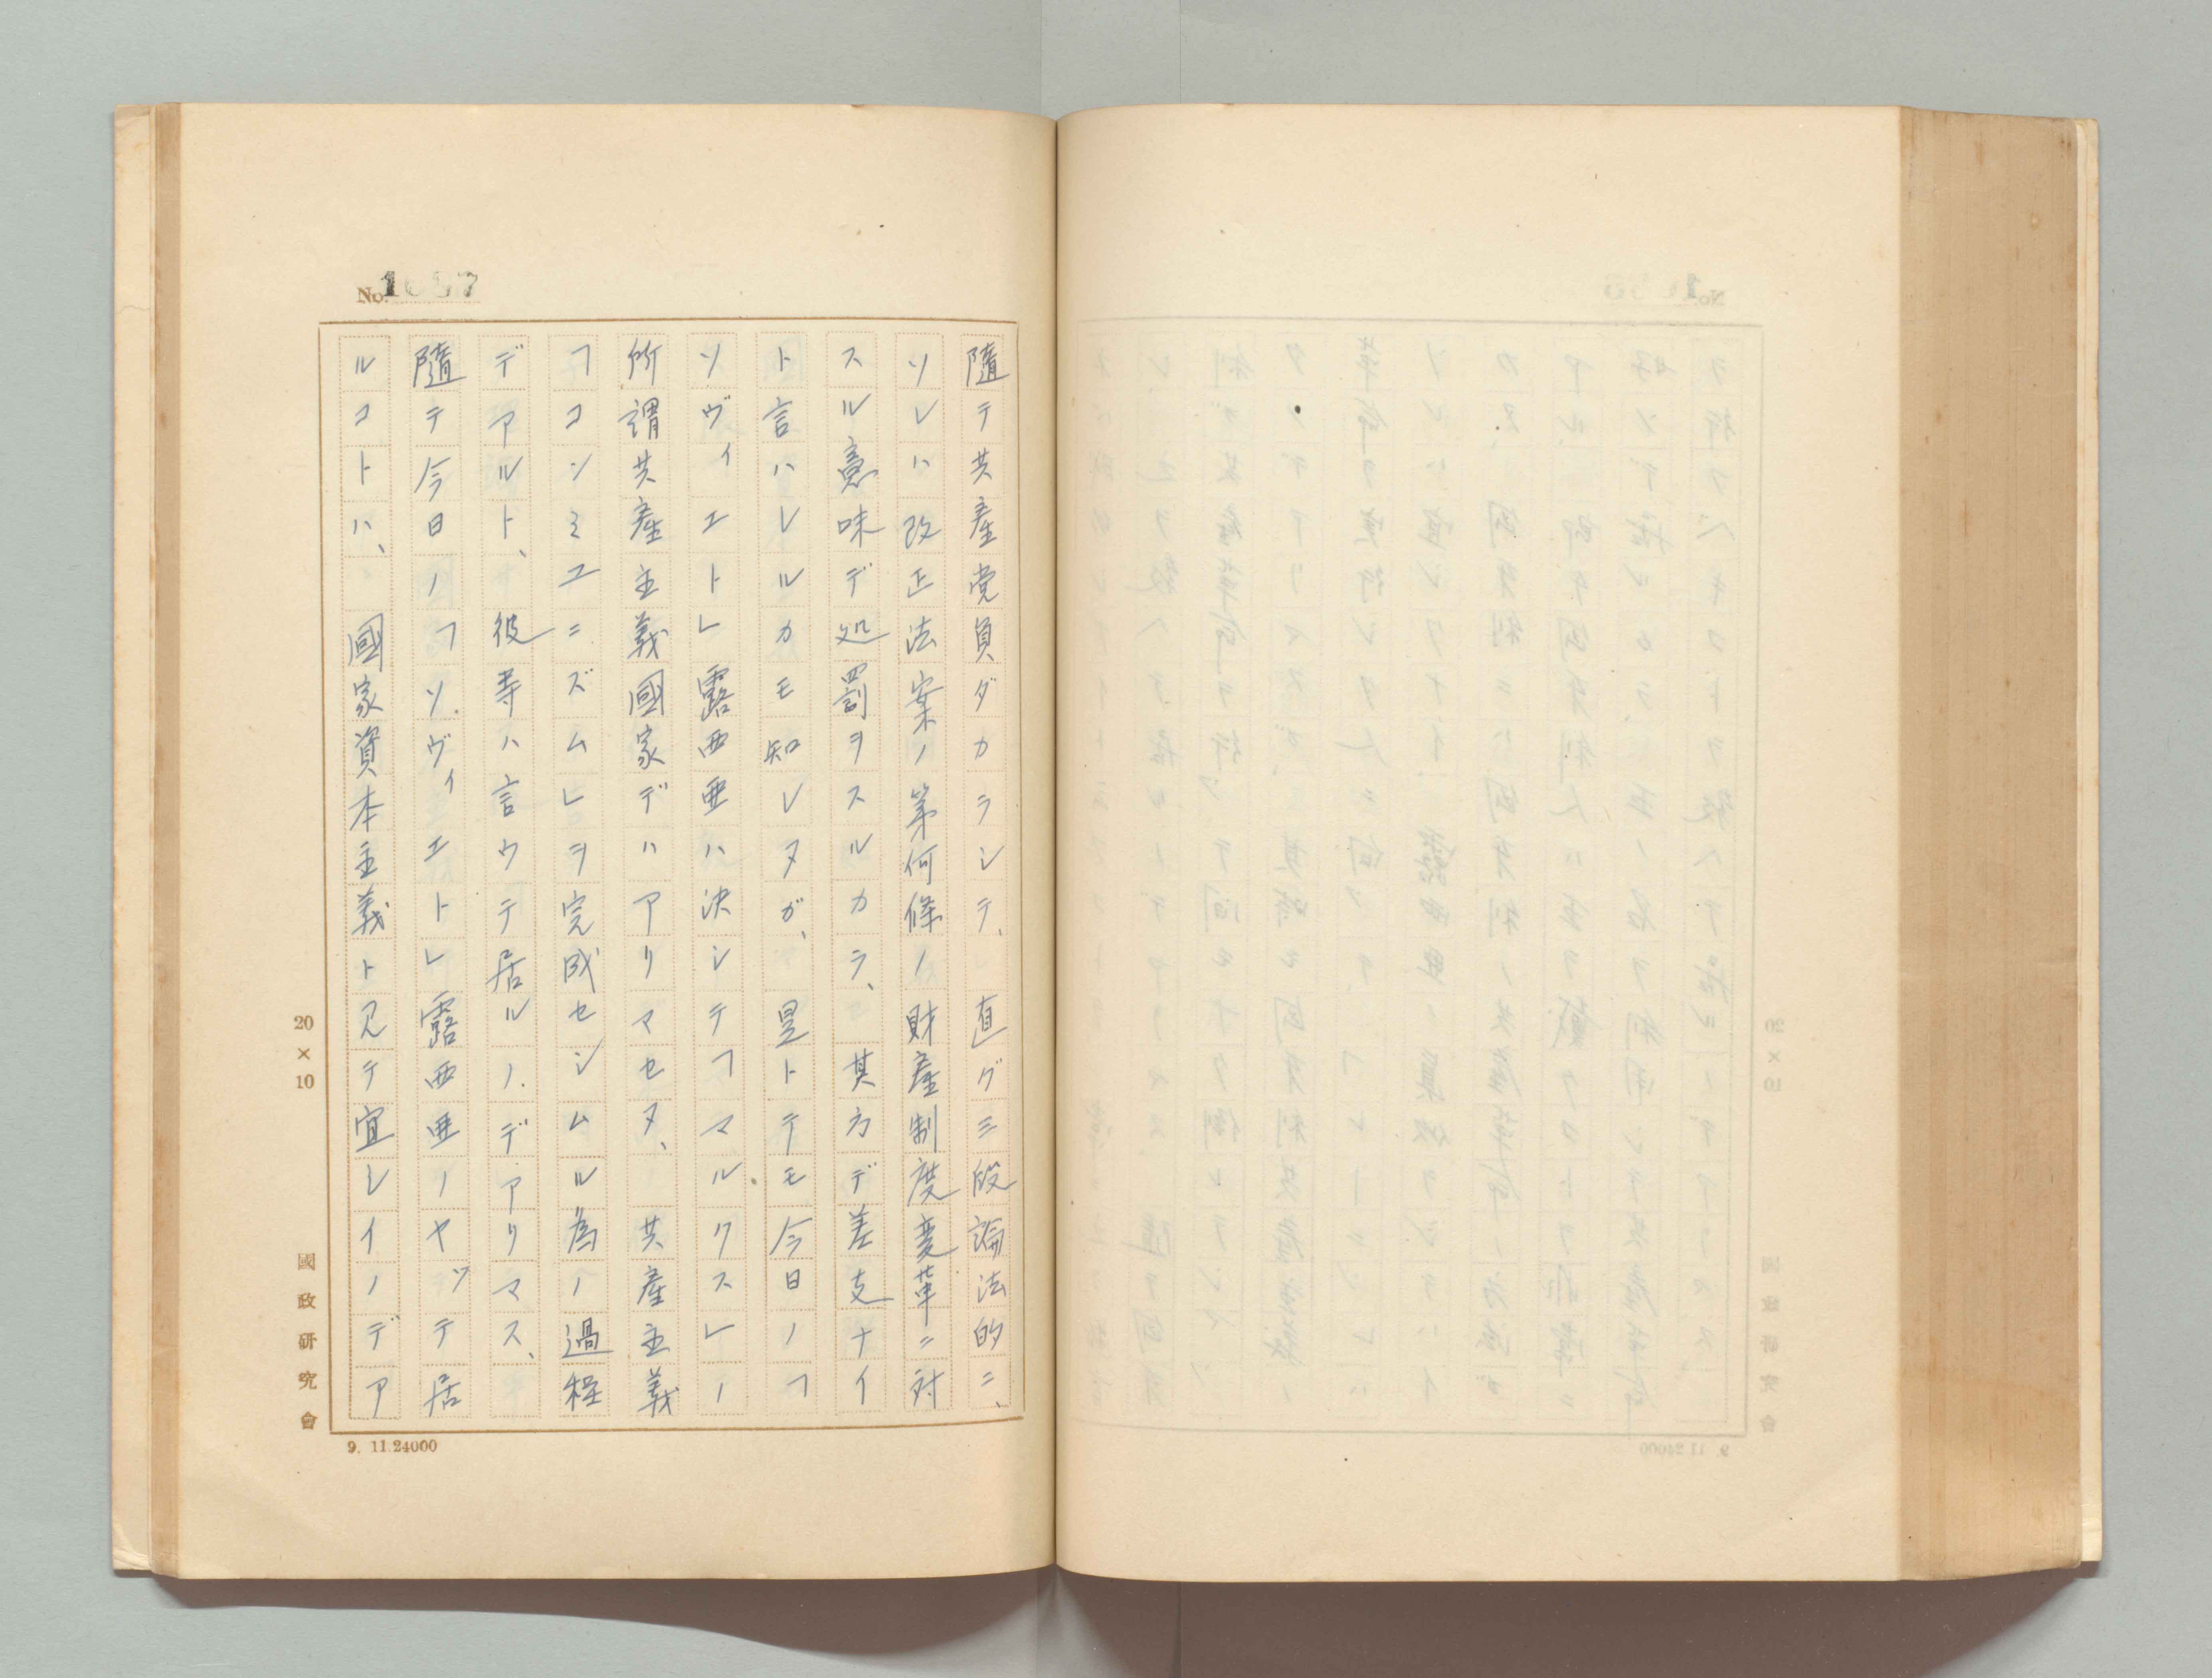 No. 1657
隨テ共産党員ダカラシテ、直グ三段論法的ニ、
ソレハ改正法案ノ第何條ノ財産制度変革ニ対
スル意味デ処罰ヲスルカラ、其方デ差支ナイ
ト言ハレルカモ知レヌガ、是トテモ今日ノ「
ソヴィエト」露西亜ハ決シテ「マルクス」ノ
所謂共産主義國家デハアリマセヌ、共産主義
「コンミユニズム」ヲ完成センムル為ノ過程
デアルト、彼等ハ言ウテ居ルノデアリマス、
隨テ今日ノ「ソヴィエト」露西亜ノヤツテ居
ルコトハ、國家資本主義ト見テ宜シイノデア
20×10
國政研究會
9. 11.24000